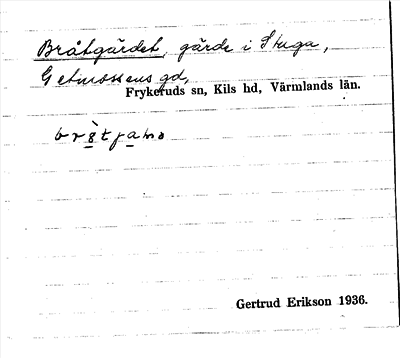 Bråtgärdet, gärde i Stuga,
Getmossens gd,
Frykeruds sn, Kils hd, Värmlands län.
Gertrud Erikson 1936.